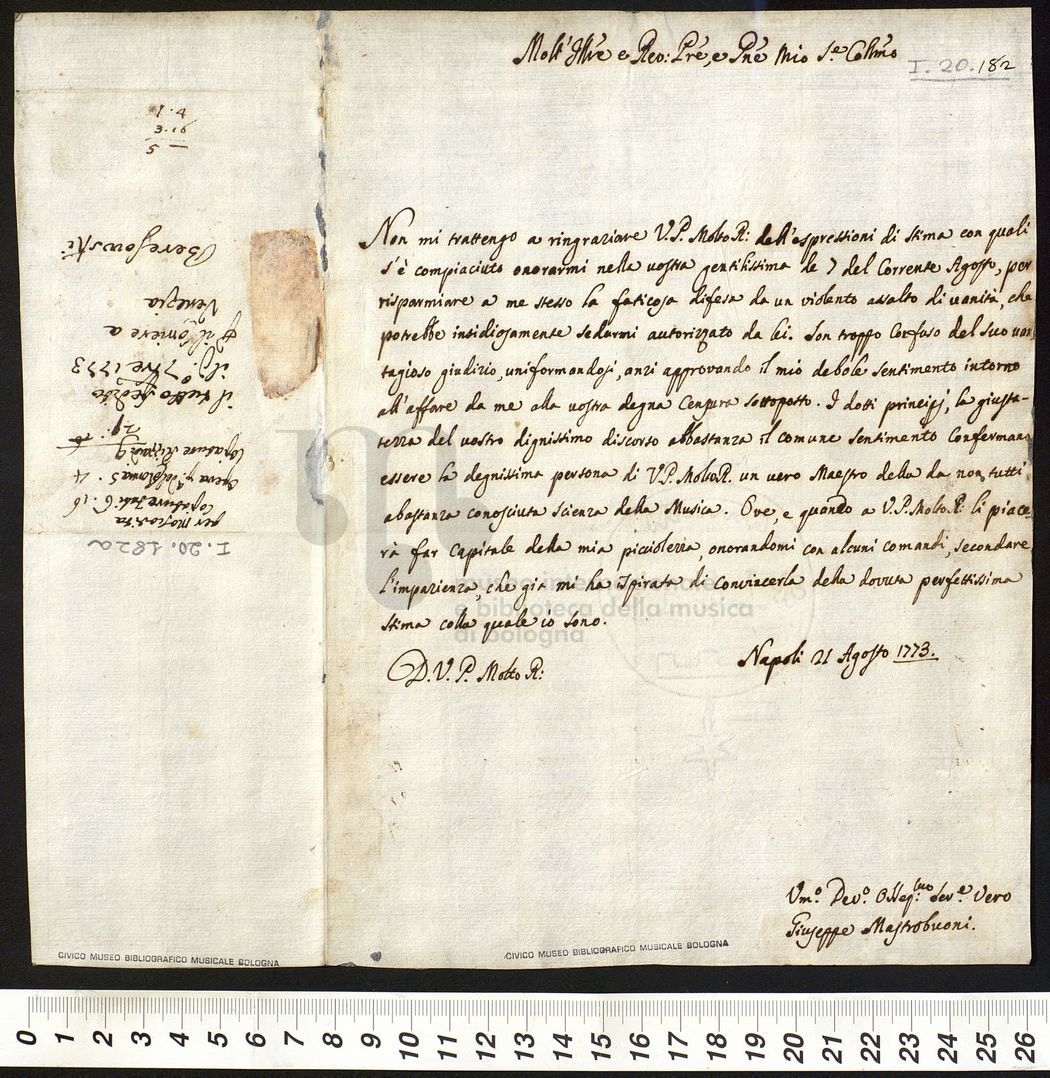 Molt' Illre e Rev: Pre, e Pne Mio Se Collmo
I. 20. 182
Non mi trattengo a ringraziare V.P. Molto R: dell'espressioni di stima con quali
s'è compiaciuto onorarmi nella vostra gentilissima de 7 del Corrente Agosto, per
risparmiare a me stesso la faticosa difesa da un violento assalto di vanità, che
potrebbe insidiosamente sedurmi autorizzato da lei. Son troppo Confuso del Suo van,
tagioso giudizio, uniformandosi, anzi approvando il mio debole sentimento intorno
all'affare da me alla vostra degna Censura sottoposto. I dotti principj, la giusta-
tezza del vostro dignissimo discorso abbastanza il comune sentimento Confermano
essere la degnissima persona di V.P. Molto R. un vero Maestro della da non tutti
abastanza conosciuta scienza della Musica. Ove, e quando a V.P. Molto R: li piace-
rà far Capitale della mia picciolezza, onorandomi con alcuni comandi, secondare
l'impazienza, che già mi ha ispirata di Convincerla della dovuta perfettissima
stima colla quale io sono.
D. V. P. Molto R:
Napoli 21 Agosto 1773.
Vmo. Devo. Osseq:mo Serve. Vero
Giuseppe Mastrobuoni.
1. 4
3. 16
5
Beresowski
Venezia
Corriere a
7bre 1773
il tutto spedito
29:
Copiature
4
6. 16
per
I. 20. 182a
museo internazionale
e biblioteca della musica
di bologna
CIVICO MUSEO BIBLIOGRAFICO MUSICALE BOLOGNA
CIVICO MUSEO BIBLIOGRAFICO MUSICALE BOLOGNA
0 1 2 3 4 5 6 7 8 9 10 11 12 13 14 15 16 17 18 19 20 21 22 23 24 25 26